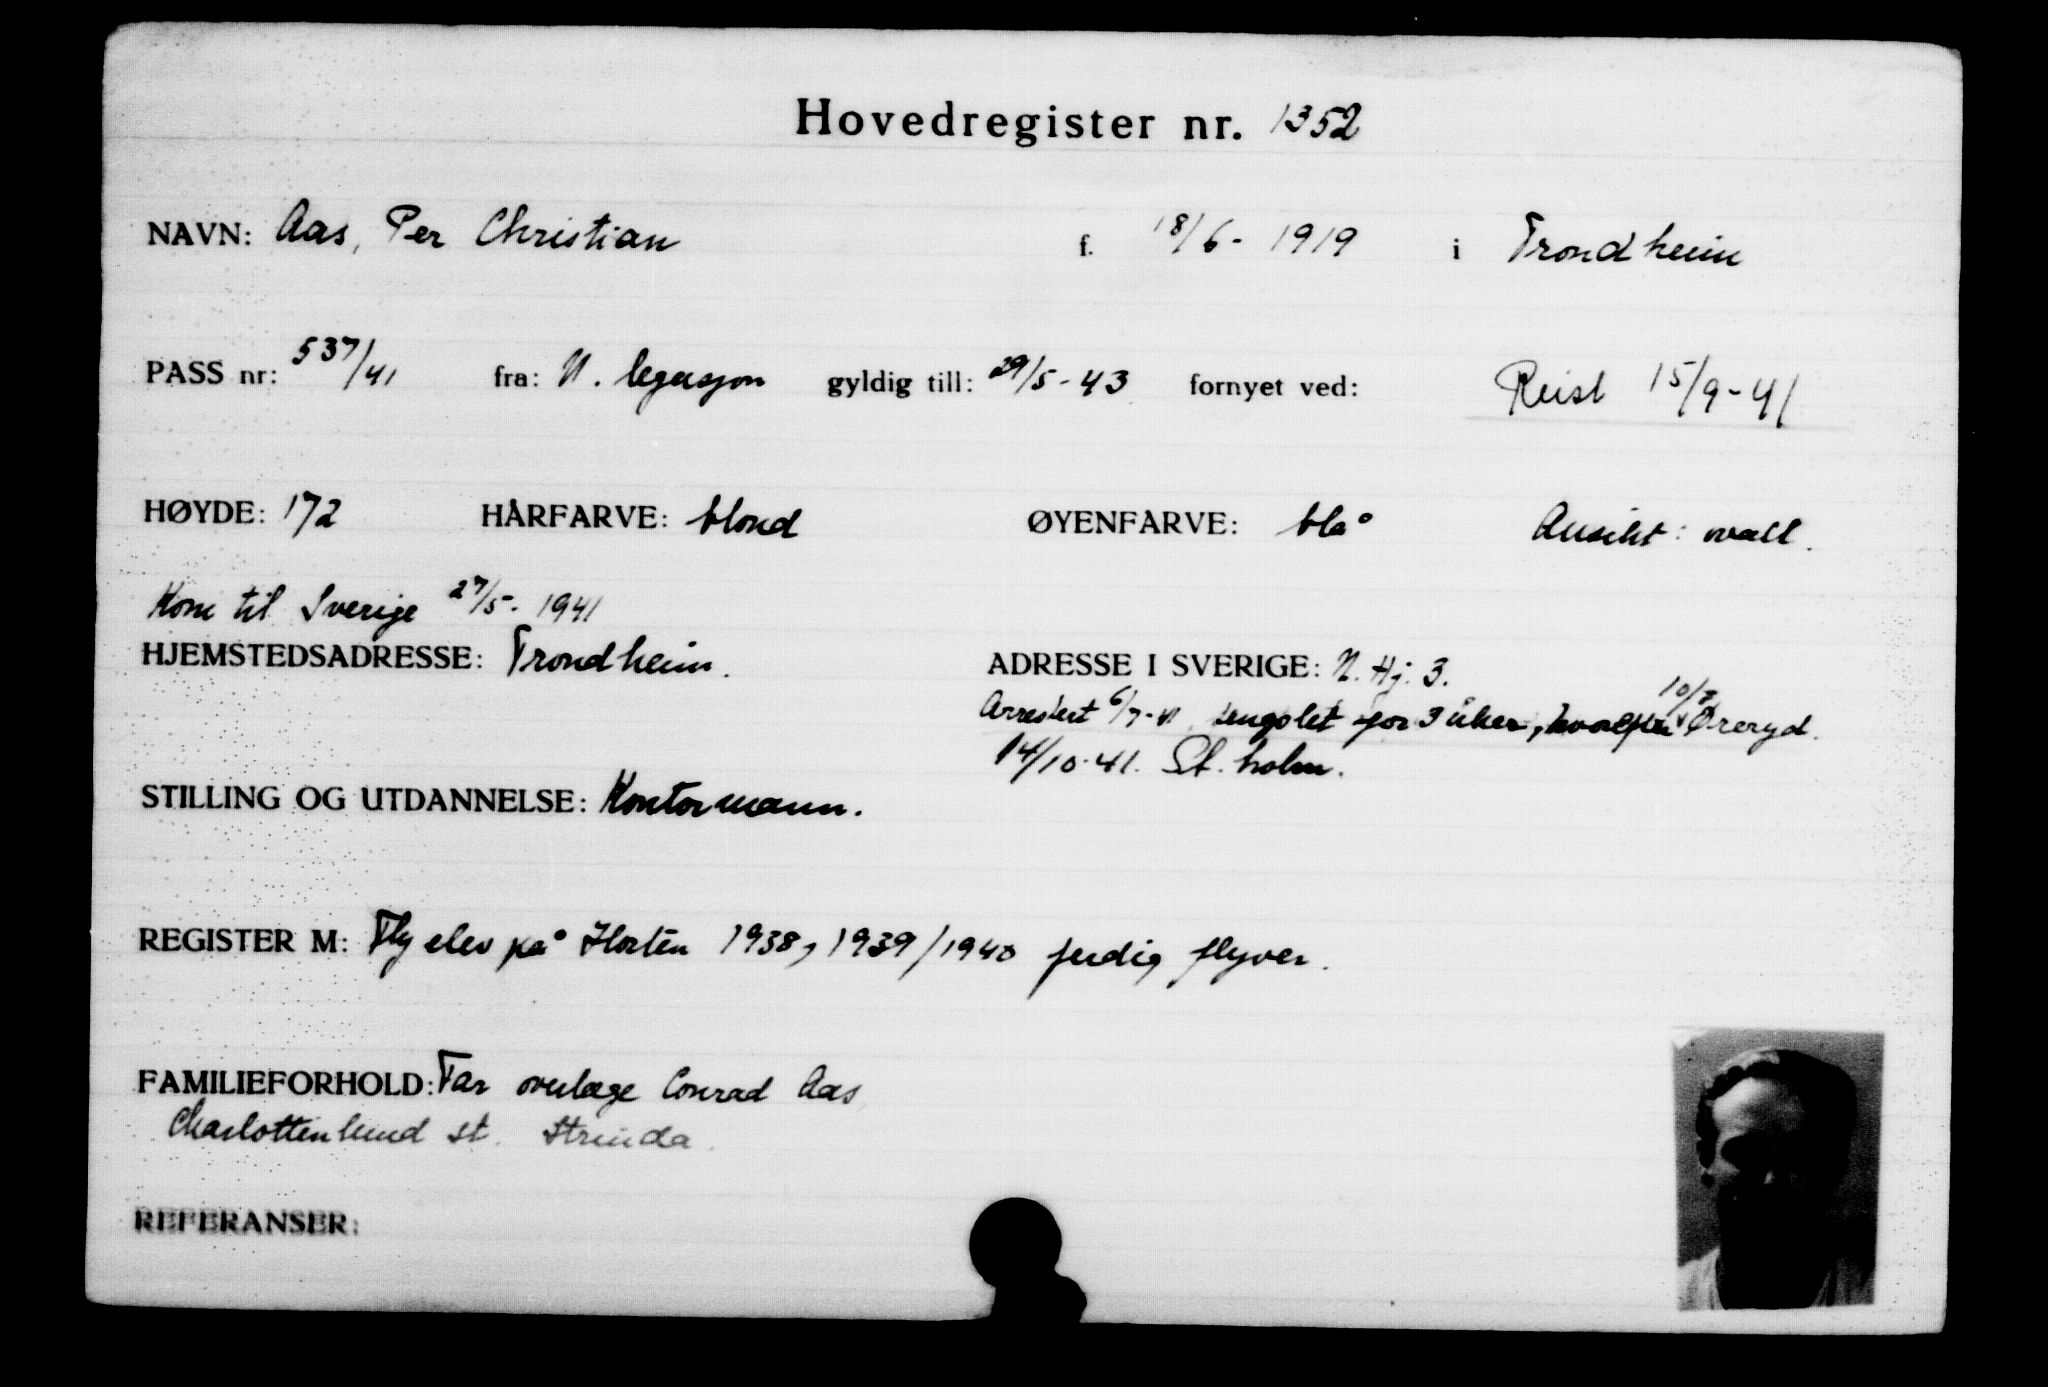 Hovedregister nr. 1352
NAVN: Aas, Per Christian f. 18/6- 1919 i Trondheim
PASS nr: 537/41 fra: N. legasjon gyldig till: 29/5-43 fornyet ved: Reist 15/9-41
HØYDE: 172 HÅRFARVE: blond ØYENFARVE: blå Ansikt: ovalt.
Kom til Sverige 27/5- 1941
HJEMSTEDSADRESSE: Trondheim. ADRESSE I SVERIGE: N. Hj. 3.
Arrestert 6/7-41, fengslet for 3 uker, hvorefter Øreryd.
14/10-41. St. holm.
STILLING OG UTDANNELSE: Kontormann.
REGISTER M: Fly elev på Horten 1938, 1939/1940 ferdig flyver.
FAMILIEFORHOLD: Far overlæge Conrad Aas
Charlottenlund st. Strinda.
REFERANSER: